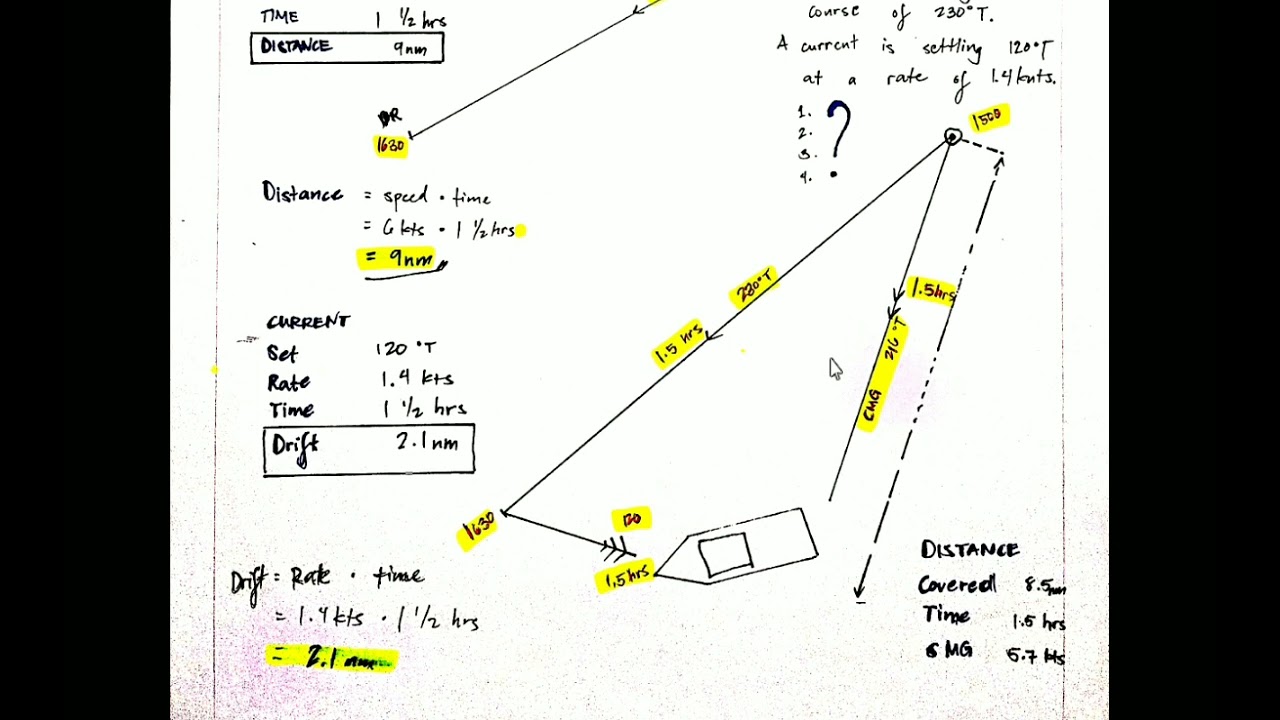 TIME 1 1/2 hrs
DISTANCE 9nm
course of 230°T.
A current is settling 120°T
at a rate of 1.4 knts.
1.
2.
3.
4.
?
DR
1630
1500
Distance = speed · time
= 6 kts · 1 1/2 hrs
= 9nm
230°T
1.5 hrs
1.5hrs
CMG 216 °T
CURRENT
Set 120 °T
Rate 1.4 kts
Time 1 1/2 hrs
Drift 2.1 nm
1630
120
1.5 hrs
Drift = Rate · time
= 1.4 kts · 1 1/2 hrs
= 2.1 nm
DISTANCE
Covered 8.5nm
Time 1.5 hrs
SMG 5.7 kts